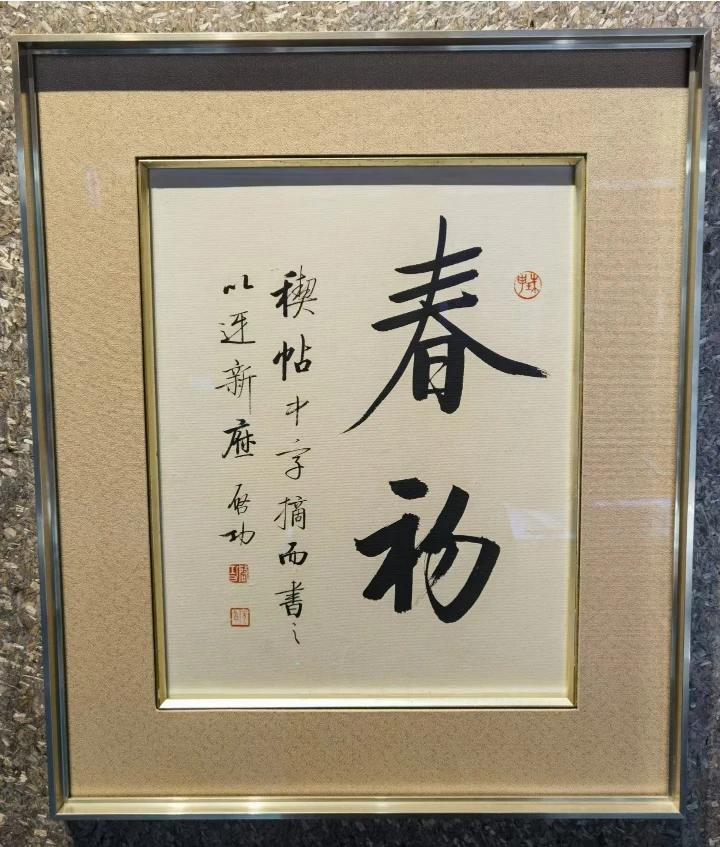 春初
稧帖中字摘而書之
以迓新厘 启功